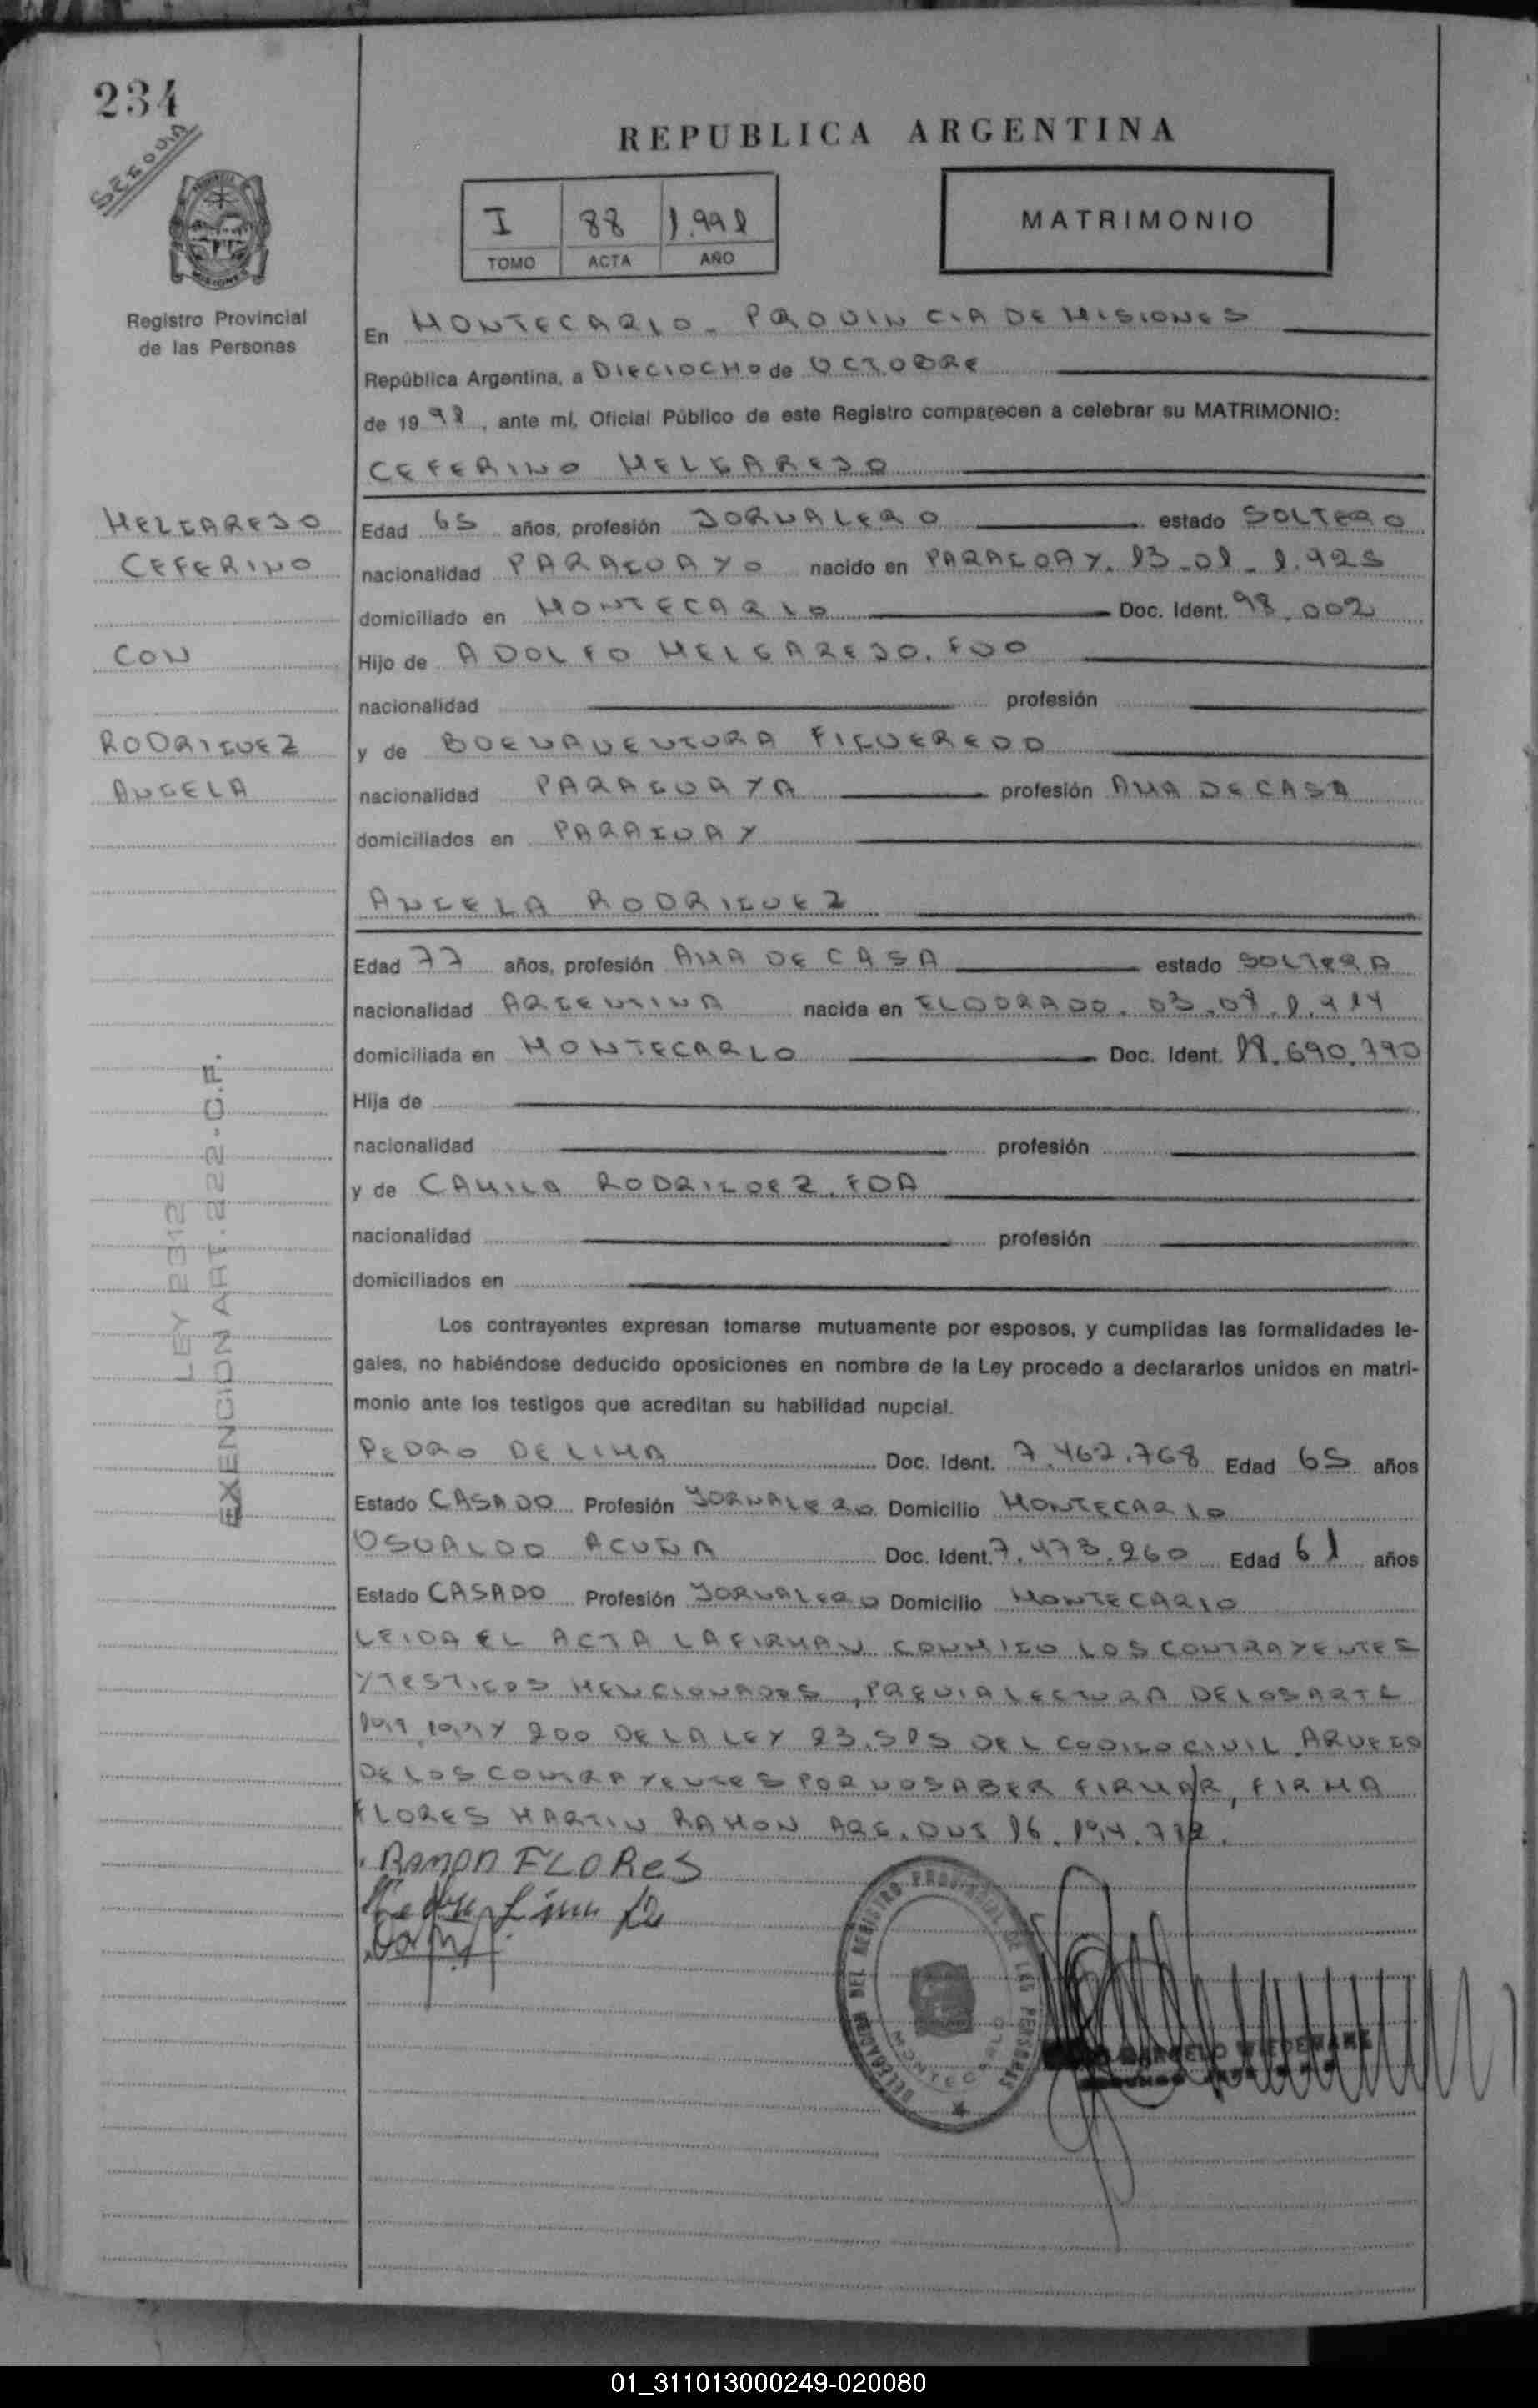 234
SEGUNDA
REPUBLICA ARGENTINA
I 88 1.991
TOMO ACTA AÑO
MATRIMONIO
Registro Provincial
de las Personas
En MONTECARLO - PROVINCIA DE MISIONES
República Argentina, a DIECIOCHO de OCTUBRE
de 1991, ante mí, Oficial Público de este Registro comparecen a celebrar su MATRIMONIO:
CEFERINO MELGAREJO
MELGAREJO
CEFERINO
CON
RODRIGUEZ
ANGELA
Edad 65 años, profesión JORNALERO estado SOLTERO
nacionalidad PARAGUAYO nacido en PARAGUAY. 13-01-1.925
domiciliado en MONTECARLO Doc. Ident. 98.002
Hijo de ADOLFO MELGAREJO. FDO
nacionalidad profesión
y de BUENAVENTURA FIGUEREDO
nacionalidad PARAGUAYA profesión AMA DE CASA
domiciliados en PARAGUAY
ANGELA RODRIGUEZ
Edad 77 años, profesión AMA DE CASA estado SOLTERA
nacionalidad ARGENTINA nacida en ELDORADO. 03.07.1.914
domiciliada en MONTECARLO Doc. Ident. 690.790
Hija de
nacionalidad profesión
y de CAMILA RODRIGUEZ. FDA
nacionalidad profesión
domiciliados en
LEY 2312
EXENCION ART. 222-C.F.
Los contrayentes expresan tomarse mutuamente por esposos, y cumplidas las formalidades le-
gales, no habiéndose deducido oposiciones en nombre de la Ley procedo a declararlos unidos en matri-
monio ante los testigos que acreditan su habilidad nupcial.
PEDRO DE LIMA Doc. Ident. 7.467.768 Edad 65 años
Estado CASADO Profesión JORNALERO Domicilio MONTECARLO
OSVALDO ACUÑA Doc. Ident. 7.473.260 Edad 61 años
Estado CASADO Profesión JORNALERO Domicilio MONTECARLO
LEIDA EL ACTA LA FIRMAN CONMIGO LOS CONTRAYENTES
Y TESTIGOS MENCIONADOS, PREVIA LECTURA DE LOS ART
Y 200 DE LA LEY 23.515 DEL CODIGO CIVIL. A RUEGO
DE LOS CONTRAYENTES POR NO SABER FIRMAR, FIRMA
FLORES MARTIN RAMON ARG. DNI 16.194.712.
RAMON FLORES
DELEGACION DEL REGISTRO PROVINCIAL DE LAS PERSONAS
MONTECARLO
MARCELO WIEDEMANN
01_311013000249-020080